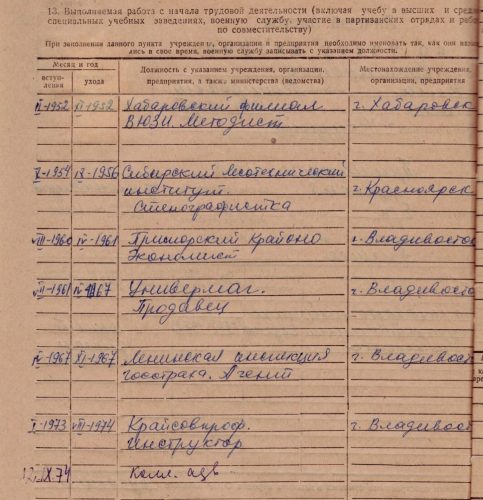 13. Выполняемая работа с начала трудовой деятельности (включая учебу в высших и средн
специальных учебных заведениях, военную службу, участие в партизанских отрядах и рабо
по совместительству)
При заполнении данного пункта учреждения, организации и предприятия необходимо именовать так, как они назы
лись в свое время, военную службу записывать с указанием должности.
Месяц и год
вступ-
ления
ухода
Должность с указанием учреждения, организации,
предприятия, а также министерства (ведомства)
Местонахождение учреждения,
организации, предприятия
1952 VI-1952 Хабаровский филиал г. Хабаровск
ВЮЗИ. Методист
1954 IX-1956 Сибирский Лесотехнический
институт. г. Красноярск
Стенографистка
VIII-1960 IV-1961 Приморский Крайоно г. Владивосток
Экономист
VII-1961 IV-1967 Универмаг. г. Владивосто
Продавец
IV-1967 XI-1967 Ленинская инспекция г. Владивост
госстраха. Агент
X-1973 VIII-1974 Крайсовпроф. г. Владивост
Инструктор
12.IX.74 колл. адв